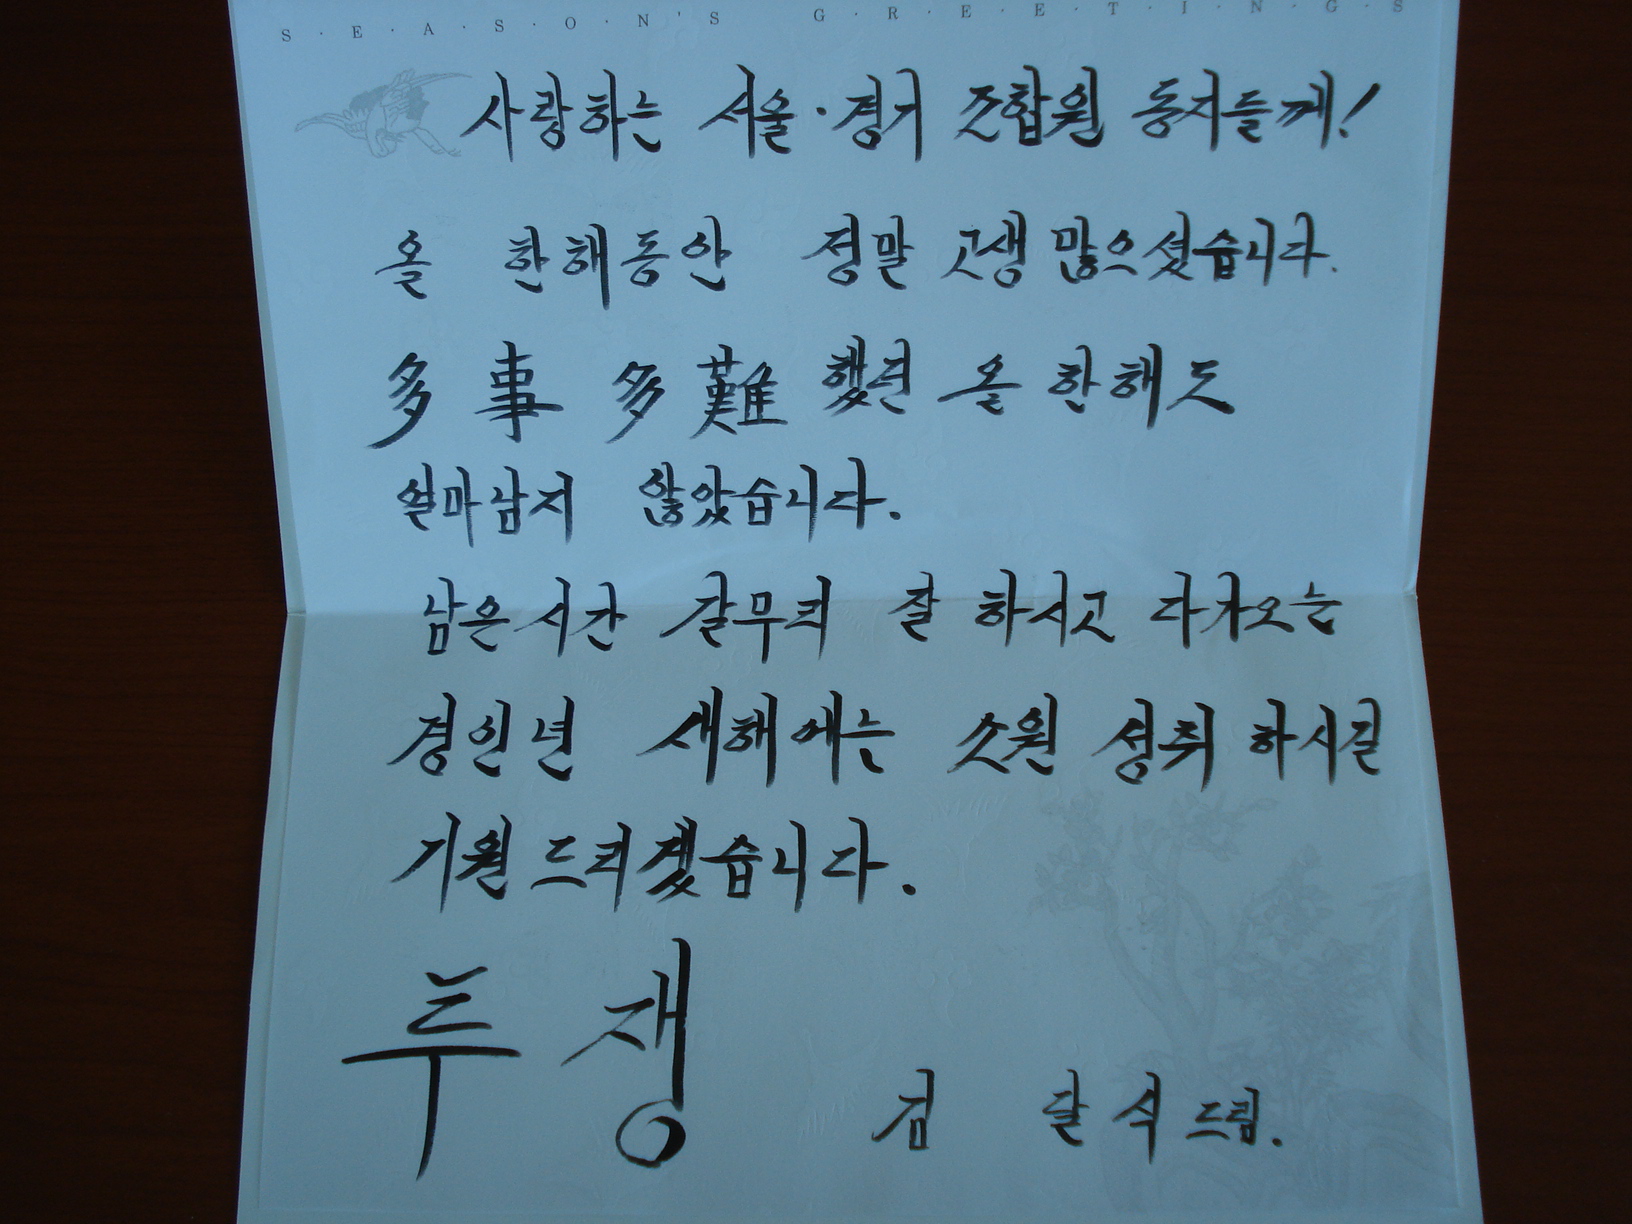 S·E·A·S·O·N'S G·R·E·E·T·I·N·G·S
사랑하는 서울·경기 조합원 동지들께!
올 한해동안 정말 고생 많으셨습니다.
多事多難 했던 올 한해도
얼마남지 않았습니다.
남은시간 갈무리 잘 하시고 다가오는
경인년 새해에는 소원 성취 하시길
기원 드리겠습니다.
투쟁
김 달식 드림.